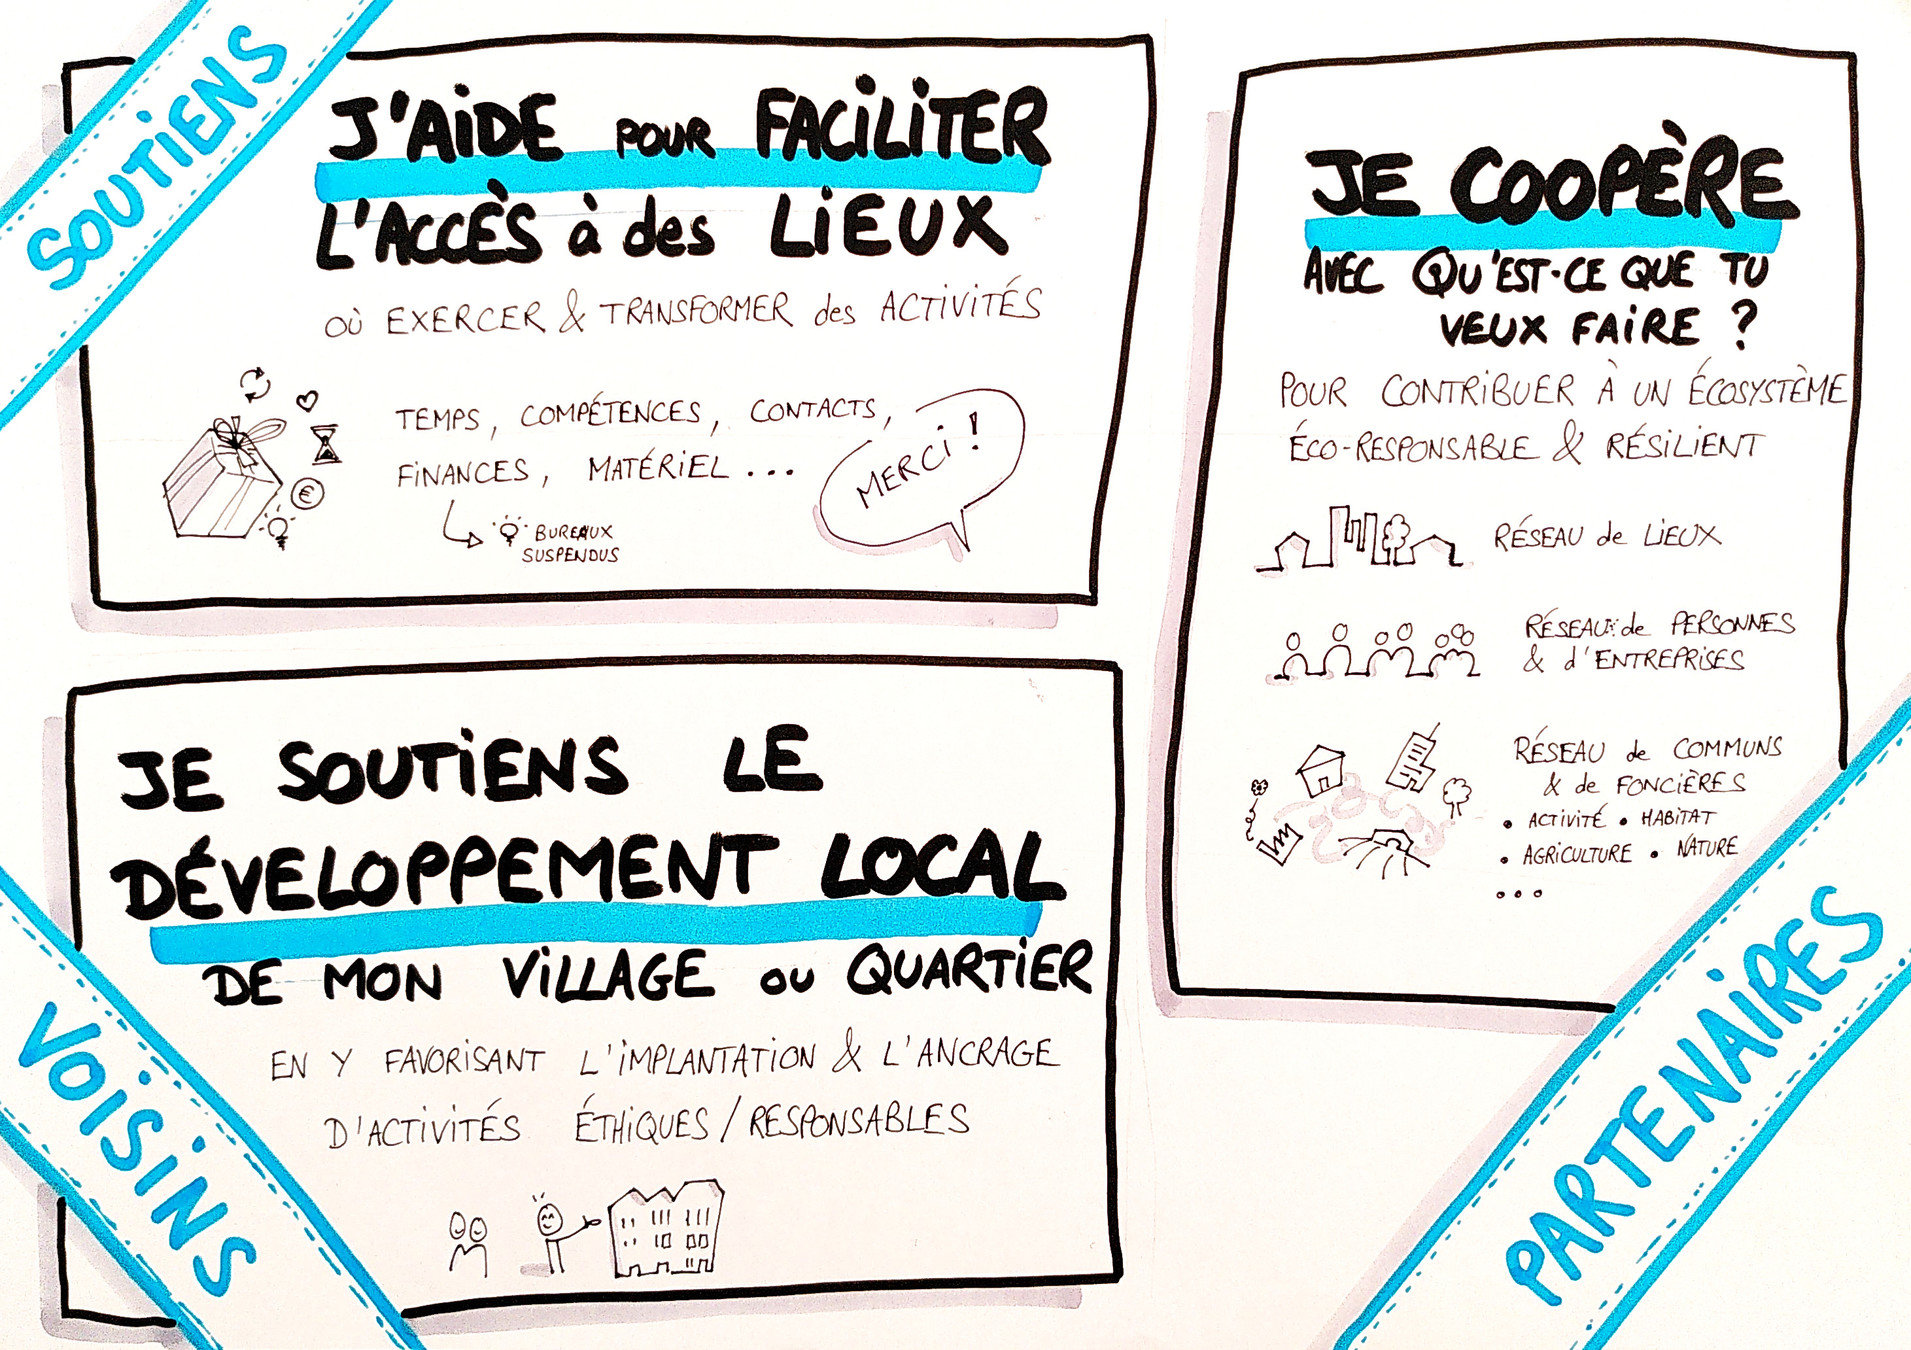 SOUTIENS
J'AIDE POUR FACILITER
L'ACCÈS à des LIEUX
OÙ EXERCER & TRANSFORMER des ACTIVITÉS
TEMPS, COMPÉTENCES, CONTACTS,
FINANCES, MATÉRIEL ...
MERCI !
BUREAUX
SUSPENDUS
€
JE SOUTIENS LE
DÉVELOPPEMENT LOCAL
DE MON VILLAGE OU QUARTIER
EN Y FAVORISANT L'IMPLANTATION & L'ANCRAGE
D'ACTIVITÉS ÉTHIQUES / RESPONSABLES
VOISINS
JE COOPÈRE
AVEC QU'EST-CE QUE TU
VEUX FAIRE ?
POUR CONTRIBUER À UN ÉCOSYSTÈME
ÉCO-RESPONSABLE & RÉSILIENT
RÉSEAU de LIEUX
RÉSEAUX de PERSONNES
& d'ENTREPRISES
RÉSEAU de COMMUNS
& de FONCIÈRES
• ACTIVITÉ • HABITAT
• AGRICULTURE • NATURE
...
PARTENAIRES